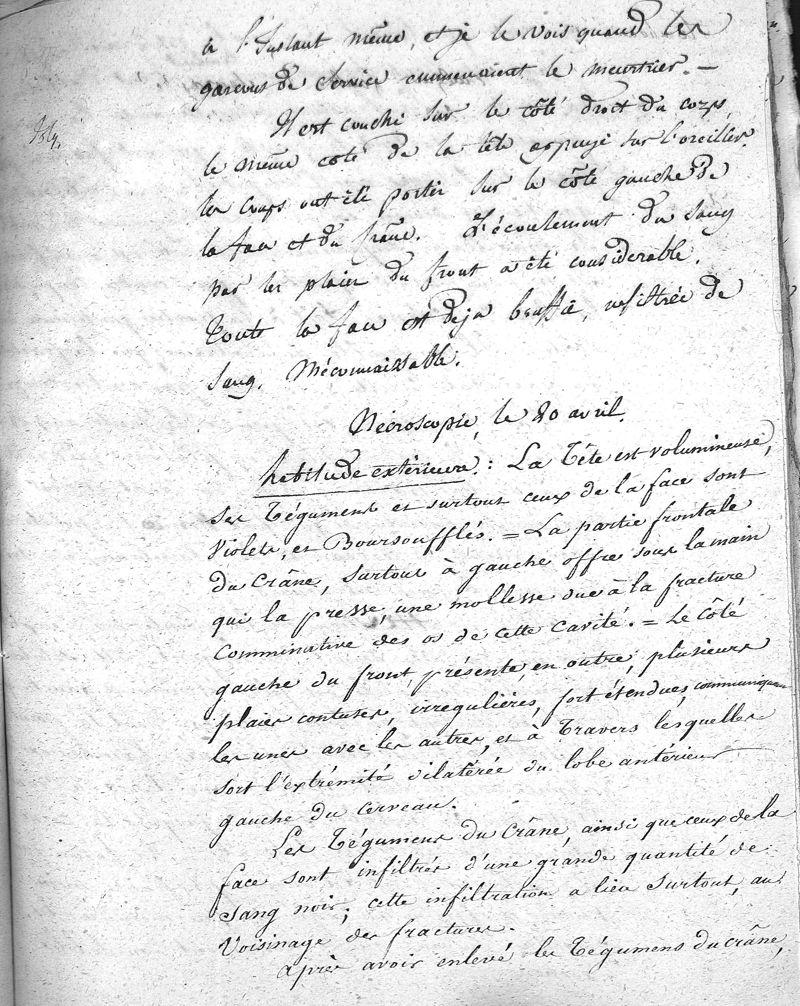 à l'Instant même, et je le vois quand les
garçons de service emmenaient le meurtrier. —
Il est couché sur le côté droit du corps,
le même côté de la tête appuyé sur l'oreiller.
les coups ont été portés sur le côté gauche de
la face et du crâne. L'écoulement du sang
par les plaies du front a été considérable.
Toute la face est déja bouffie, infiltrée de
sang. Méconnaissable.
Nécroscopie, le 20 avril.
habitude extérieure. : La Tête est volumineuse,
ses Tégumens et surtout ceux de la face sont
Violets, et Boursoufflés. = La partie frontale
du Crâne, surtout à gauche offre sous la main
qui la presse, une mollesse due à la fracture
Comminative des os de cette cavité. = Le Côté
gauche du front, présente, en outre, plusieurs
plaies contuses, irregulières, fort étendues, communiquan
les unes avec les autres, et à Travers lesquelles
sort l'extrémité dilatérée du lobe antérieur
gauche du cerveau.
Les Tégumens du Crâne, ainsi que ceux de la
face sont infiltrés d'une grande quantité de
sang noir; cette infiltration a lieu surtout, au
Voisinage des fractures.
après avoir enlevé les Tégumens du crâne,